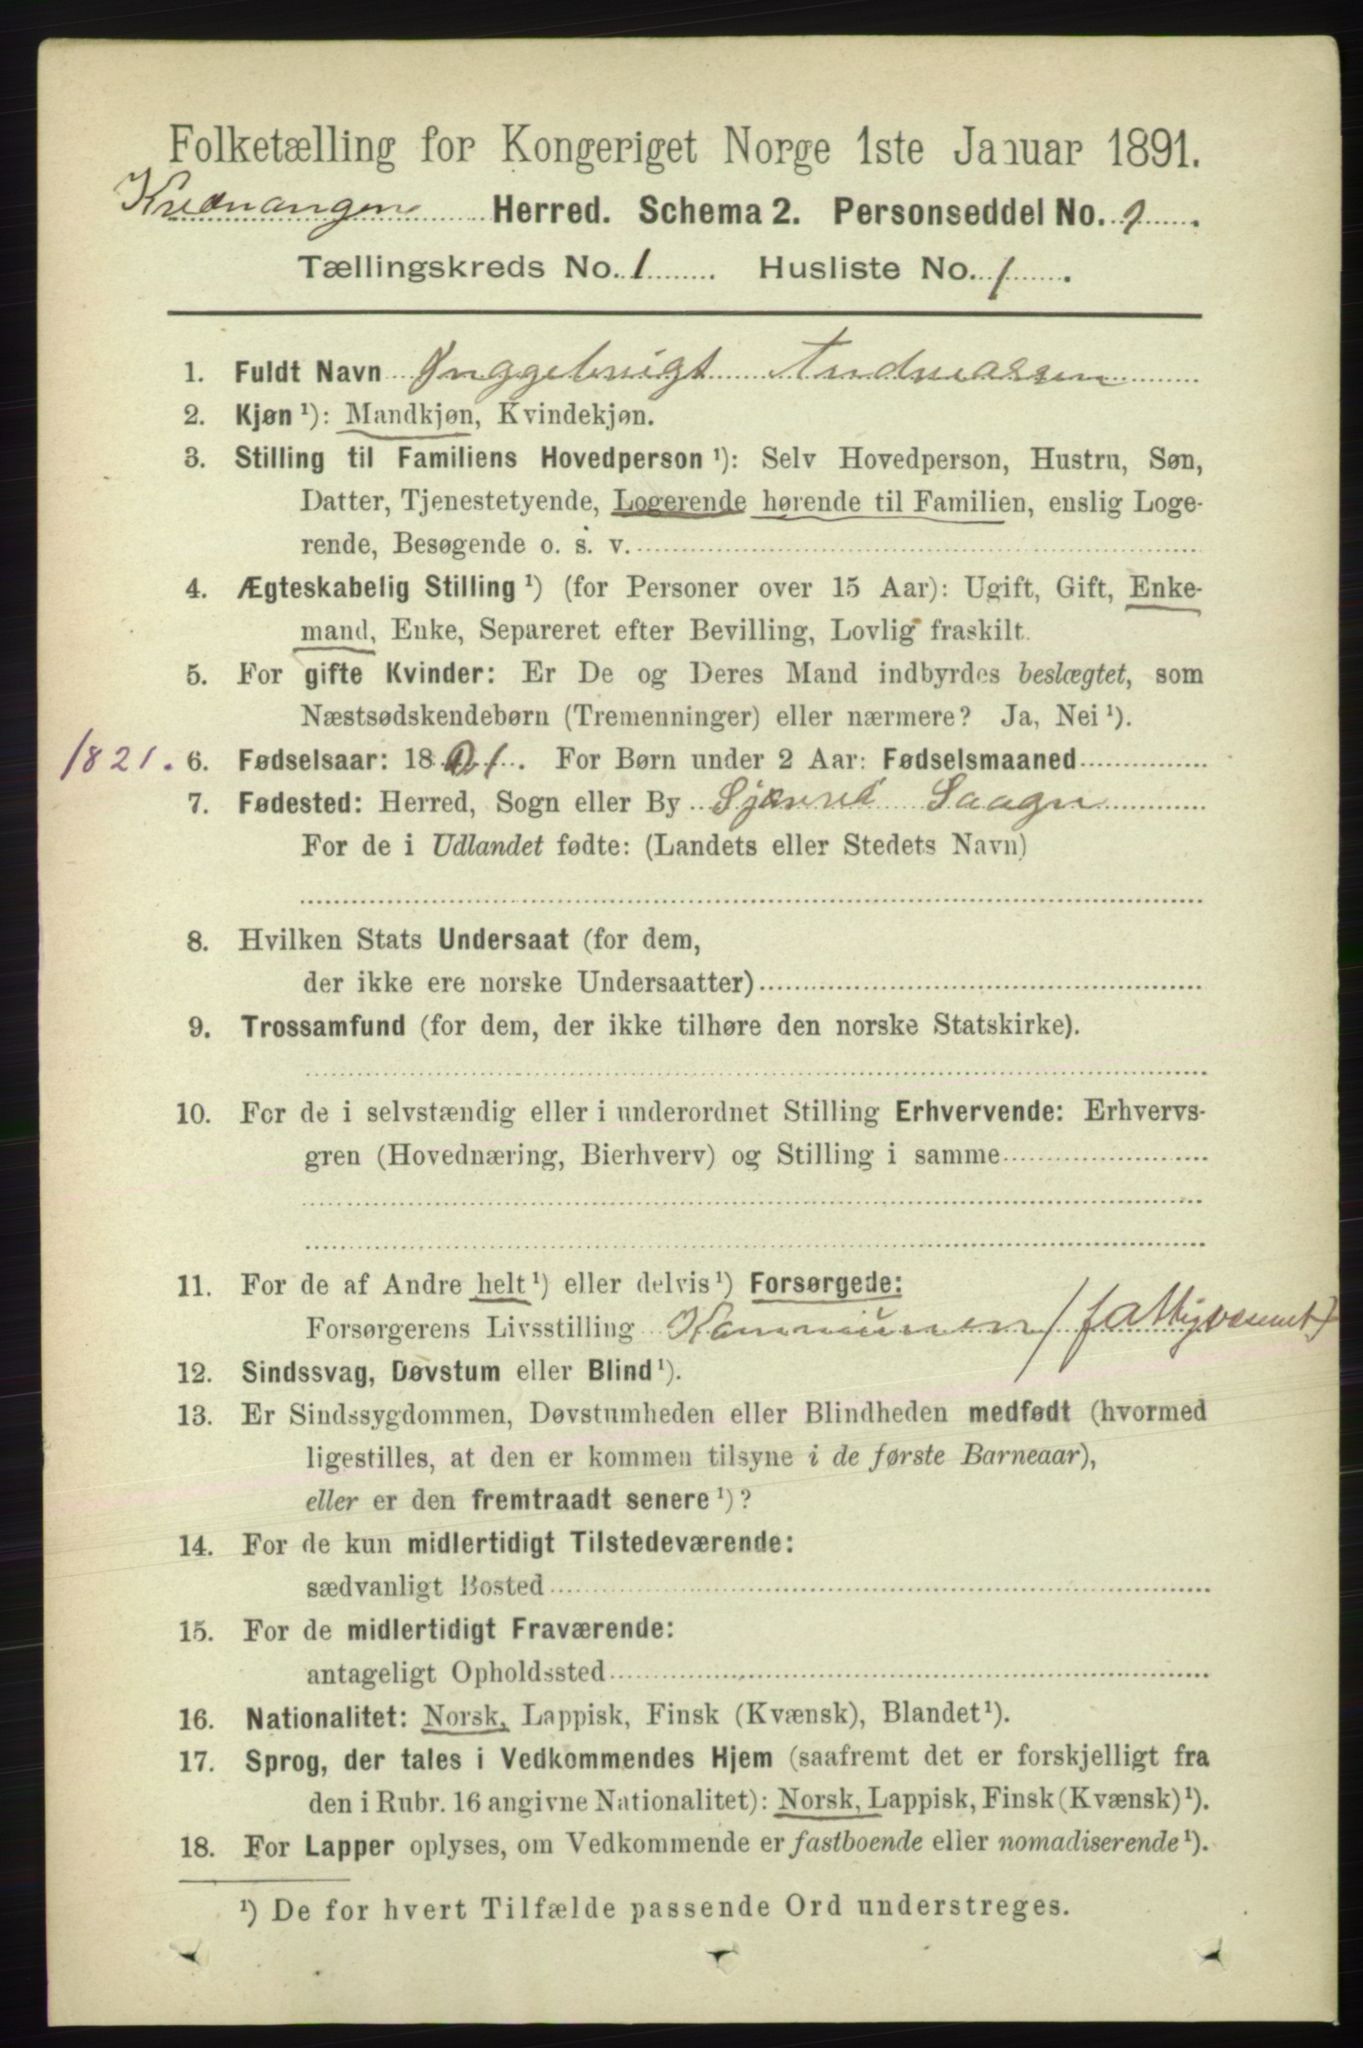 Folketælling for Kongeriget Norge 1ste Januar 1891.
Kvænangen Herred. Schema 2. Personseddel No. 9.
Tællingskreds No. 1. Husliste No. 1.
1. Fuldt Navn Inggebrigt Andreassen
2. Kjøn ¹): Mandkjøn, Kvindekjøn.
3. Stilling til Familiens Hovedperson ¹): Selv Hovedperson, Hustru, Søn,
Datter, Tjenestetyende, Logerende hørende til Familien, enslig Loge-
rende, Besøgende o. s. v.
4. Ægteskabelig Stilling ¹) (for Personer over 15 Aar): Ugift, Gift, Enke-
mand, Enke, Separeret efter Bevilling, Lovlig fraskilt.
5. For gifte Kvinder: Er De og Deres Mand indbyrdes beslægtet, som
Næstsødskendebørn (Tremenninger) eller nærmere? Ja, Nei ¹).
1821. 6. Fødselsaar: 1821. For Børn under 2 Aar: Fødselsmaaned
7. Fødested: Herred, Sogn eller By Sjærvø Saagn
For de i Udlandet fødte: (Landets eller Stedets Navn)
8. Hvilken Stats Undersaat (for dem,
der ikke ere norske Undersaatter)
9. Trossamfund (for dem, der ikke tilhøre den norske Statskirke).
10. For de i selvstændig eller i underordnet Stilling Erhvervende: Erhvervs-
gren (Hovednæring, Bierhverv) og Stilling i samme
11. For de af Andre helt ¹) eller delvis ¹) Forsørgede:
Forsørgerens Livsstilling Kommunen (fattigvæsnet)
12. Sindssvag, Døvstum eller Blind ¹).
13. Er Sindssygdommen, Døvstumheden eller Blindheden medfødt (hvormed
ligestilles, at den er kommen tilsyne i de første Barneaar),
eller er den fremtraadt senere ¹)?
14. For de kun midlertidigt Tilstedeværende:
sædvanligt Bosted
15. For de midlertidigt Fraværende:
antageligt Opholdssted
16. Nationalitet: Norsk, Lappisk, Finsk (Kvænsk), Blandet ¹).
17. Sprog, der tales i Vedkommendes Hjem (saafremt det er forskjelligt fra
den i Rubr. 16 angivne Nationalitet): Norsk, Lappisk, Finsk (Kvænsk) ¹).
18. For Lapper oplyses, om Vedkommende er fastboende eller nomadiserende ¹).
¹) De for hvert Tilfælde passende Ord understreges.